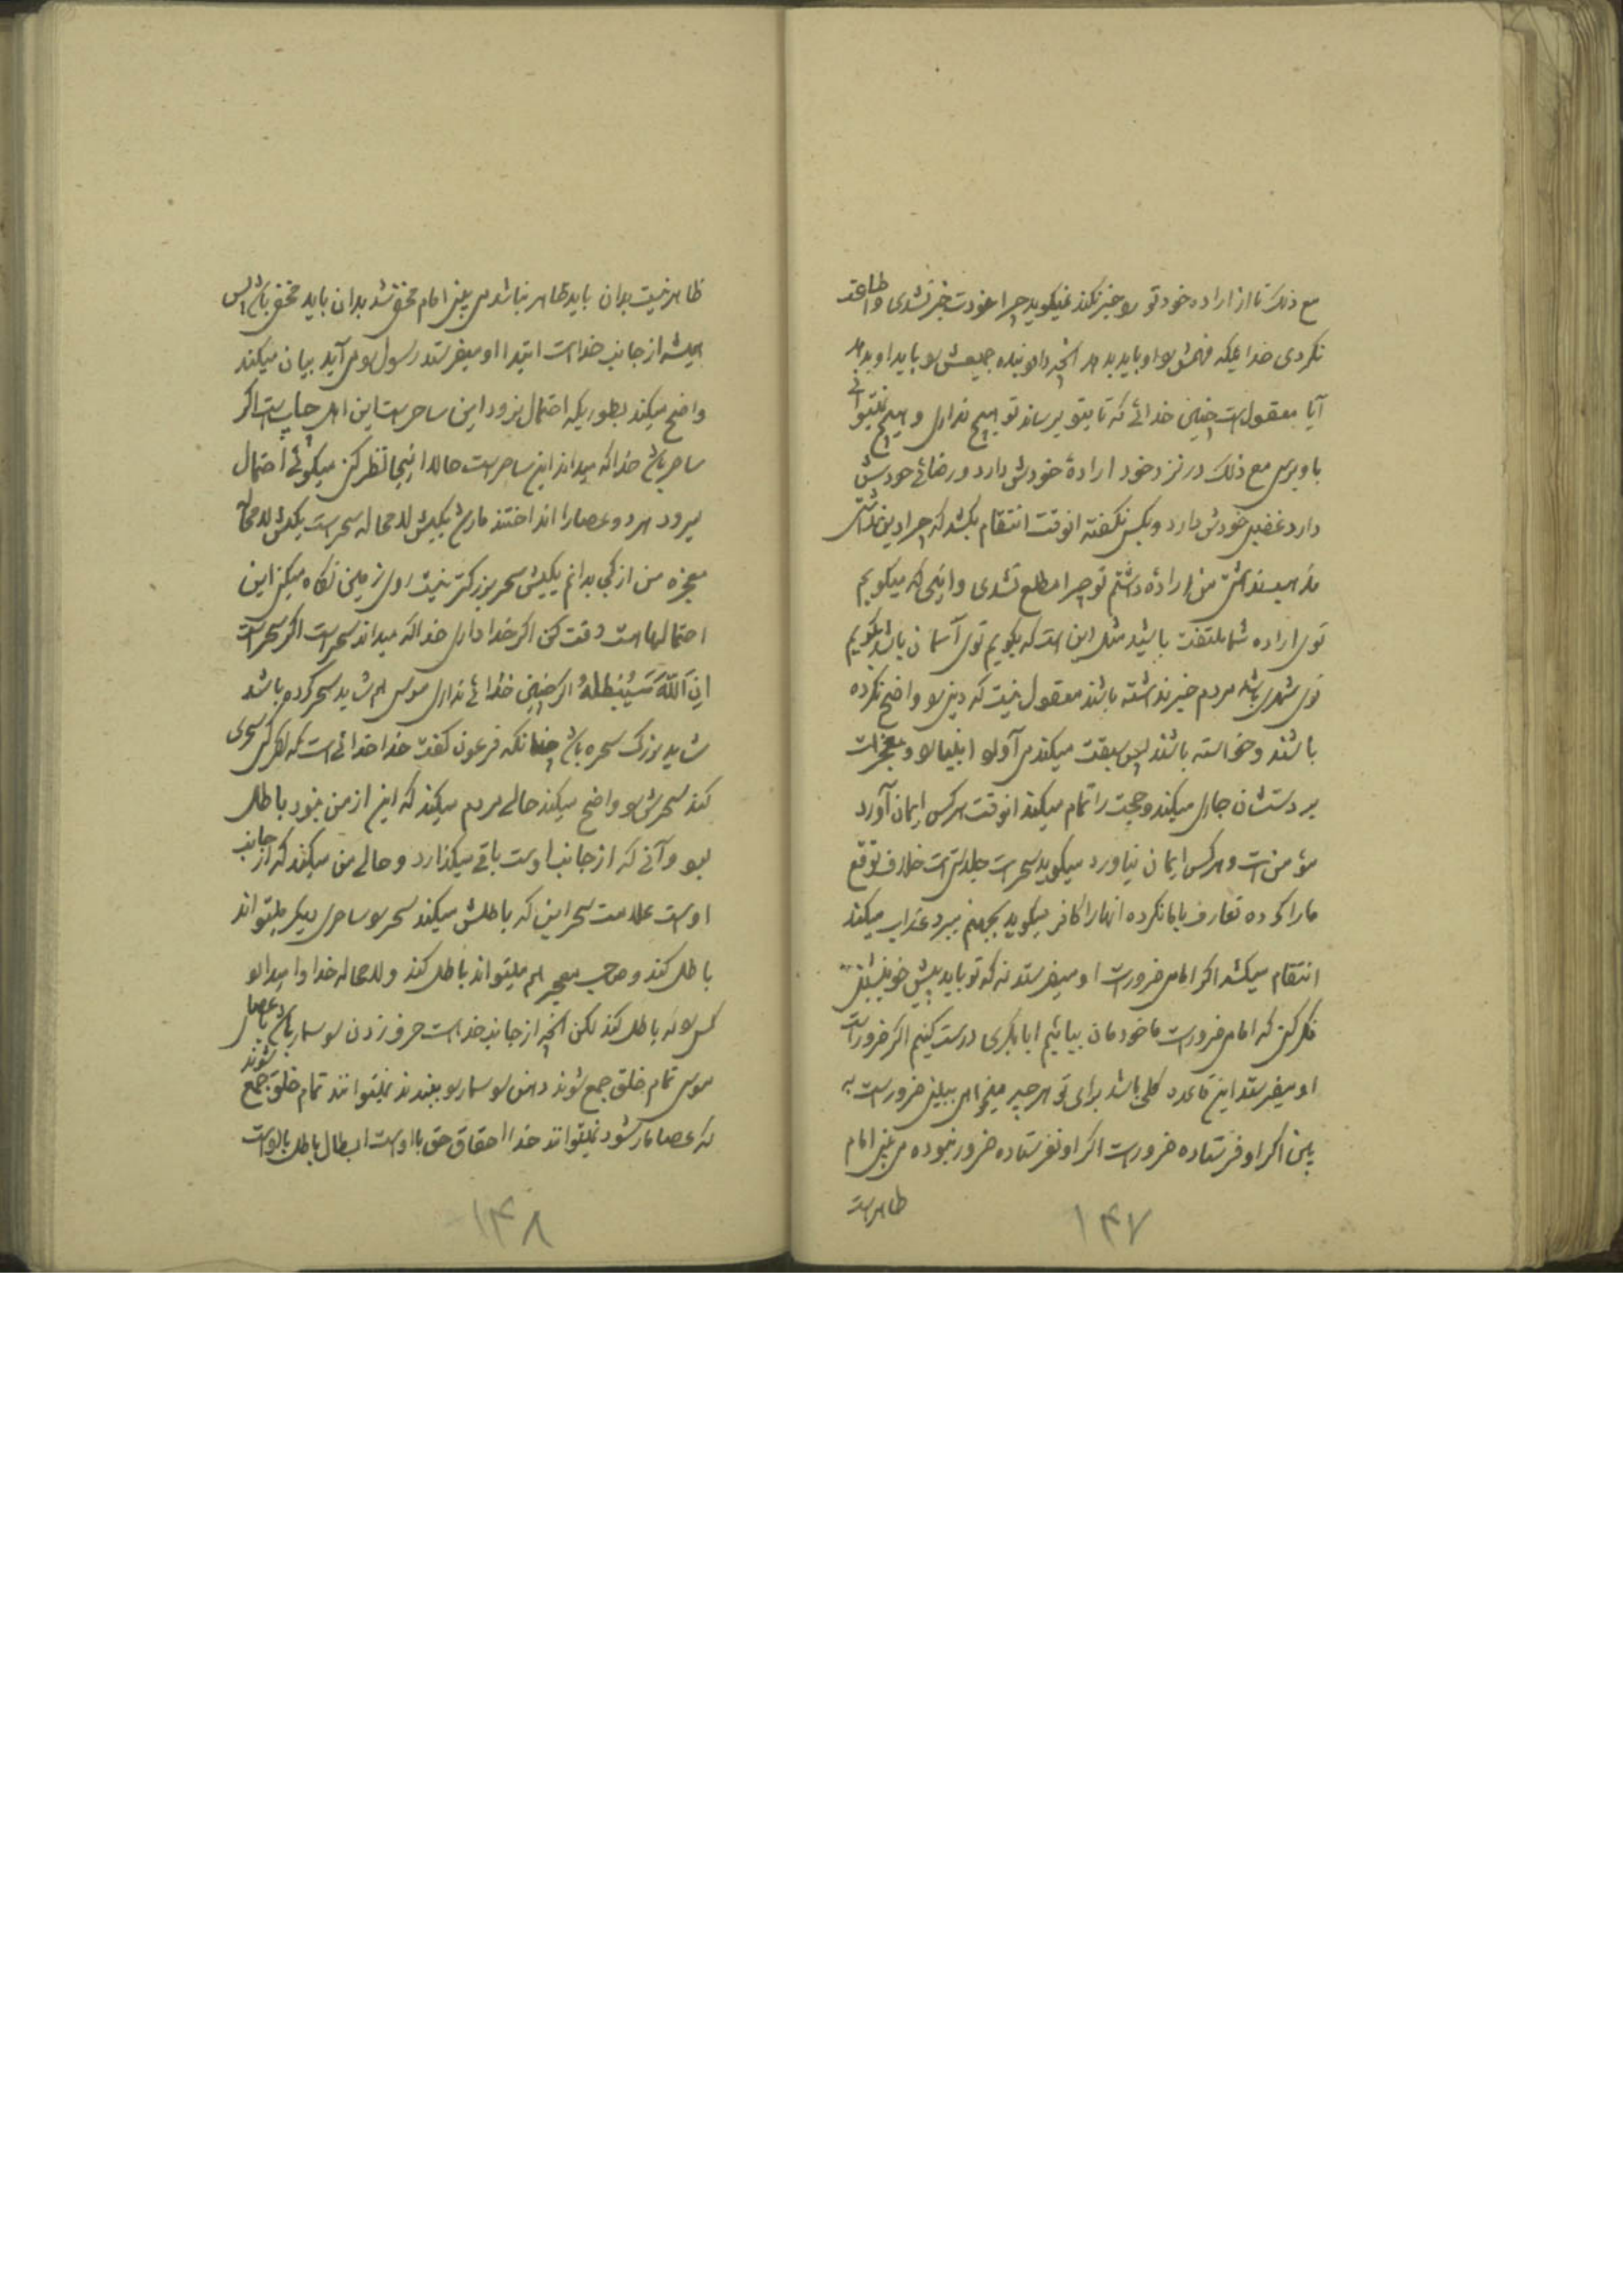 مع ذلک تا از اراده خود تو رو خبر نکند نمیگوید چرا خودت خبر نشدی و اطاعت
نکردی خدائیکه فهمش رو او باید بدهد آنچه دارد بنده جمیعش رو باید او بدهد
آیا معقول است چنین خدائی که تا بتو نرساند تو هیچ نداری و هیچ نمیتوانی
باو برسی مع ذلک در نزد خود ارادهٔ خودش دارد و رضائی خودش
دارد غضبی خودش دارد و بکس نگفته آنوقت انتقام بکشد که چرا دین نداشتی
مذهب نداشتی من ارادهٔ داشتم تو چرا مطلع نشدی و اینی که میگویم
توی اراده شما ملتفت باشید مثل این است که بگویم توی آسمان باشد بگویم
توی شهری باشد مردم خبر نداشته باشند معقول نیست که دینی رو واضح نکرده
باشند و خواسته باشند پس سبقت میکند می آورد انبیا رو و معجزات
بر دستشان جاری میکند و حجت را تمام میکند آنوقت هرکس ایمان آورد
مؤمن است و هرکس ایمان نیاورد میگوید سحر است جلدی است خلاف توقع
ما را کرده تعارف با ما نکرده آنها را کافر میگوید بجهنم میبرد عذاب میکند
انتقام میکشد اگر امامی ضرور است او میفرستد نه که تو باید پیش خود بنشینی
فکر کنی که امامی ضرور است ما خودمان بیائیم ابابکری درست کنیم اگر ضرور است
او میفرستد این قاعده کلی باشد برای تو هرچه میخواهی ببینی ضرور است به
بین اگر او فرستاده ضرور است اگر او نفرستاده ضرور نبوده می بینی امام
ظاهر است
۱۴۷
ظاهر نیست بدان باید ظاهر نباشد می بینی امام مخفی شد بدان باید مخفی باشد پس
همیشه از جانب خداست ابتدا او میفرستد رسول رو می آید بیان میکند
واضح میکند بطوریکه احتمال نرود این ساحر است این اهل است اگر
ساحر باشد خدا که میداند این ساحر است حالا اینجا نظر کن میگوئی احتمال
میرود هر دو عصا را انداختند مار شد یکیش لامحاله سحر است یکیش لامحاله
معجزه من از کجا بدانم یکیش سحر بزرگتر نیست روی زمین نگاه میکنی این
احتمالها هست دقت کن اگر خدا داری خدا که میداند سحر است اگر سحر است
اِنَّ اللّٰهَ سَیُبْطِلُهُ اگر چنین خدائی نداری موسی هم شاید سحر کرده باشد
شاید بزرگ سحره باشد چنانکه فرعون گفت خدا خدائی است که هرکس سحری
کند سحرش رو واضح میکند حالی مردم میکند که این از من نبود باطل
بود و آنی که از جانب اوست باقی میگذارد و حالی من میکند که از جانب
اوست علامت سحر این که باطلش میکند سحر رو ساحری دیگر میتواند
باطل کند و صاحب معجز هم میتواند باطل کند و لامحاله خدا وا میدارد
کسی رو که باطل کند لکن آنچه از جانب خداست حرف زدن سوسمار باشد یا عصای
موسی تمام خلق جمع شوند دهن سوسمار رو ببندند نمیتوانند تمام خلق جمع شوند
که عصا مار نشود نمیتوانند خدا احقاق حق با اوست ابطال باطل با اوست
۱۴۸